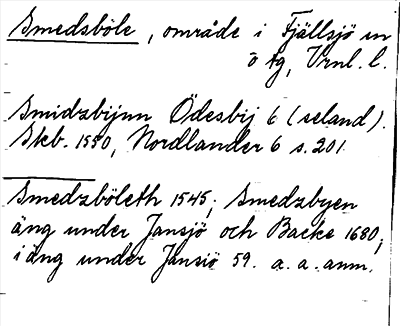 Smedsböle, område i Fjällsjö sn
ö tg, Vrnl. l.
Smidzbijnn Ödesbij 6 (seland).
Skb. 1550, Nordlander 6 s. 201.
Smedzböleth 1545; Smedzbyen
äng under Jansjö och Backe 1680;
i äng under Jansiö 59. a. a. anm.